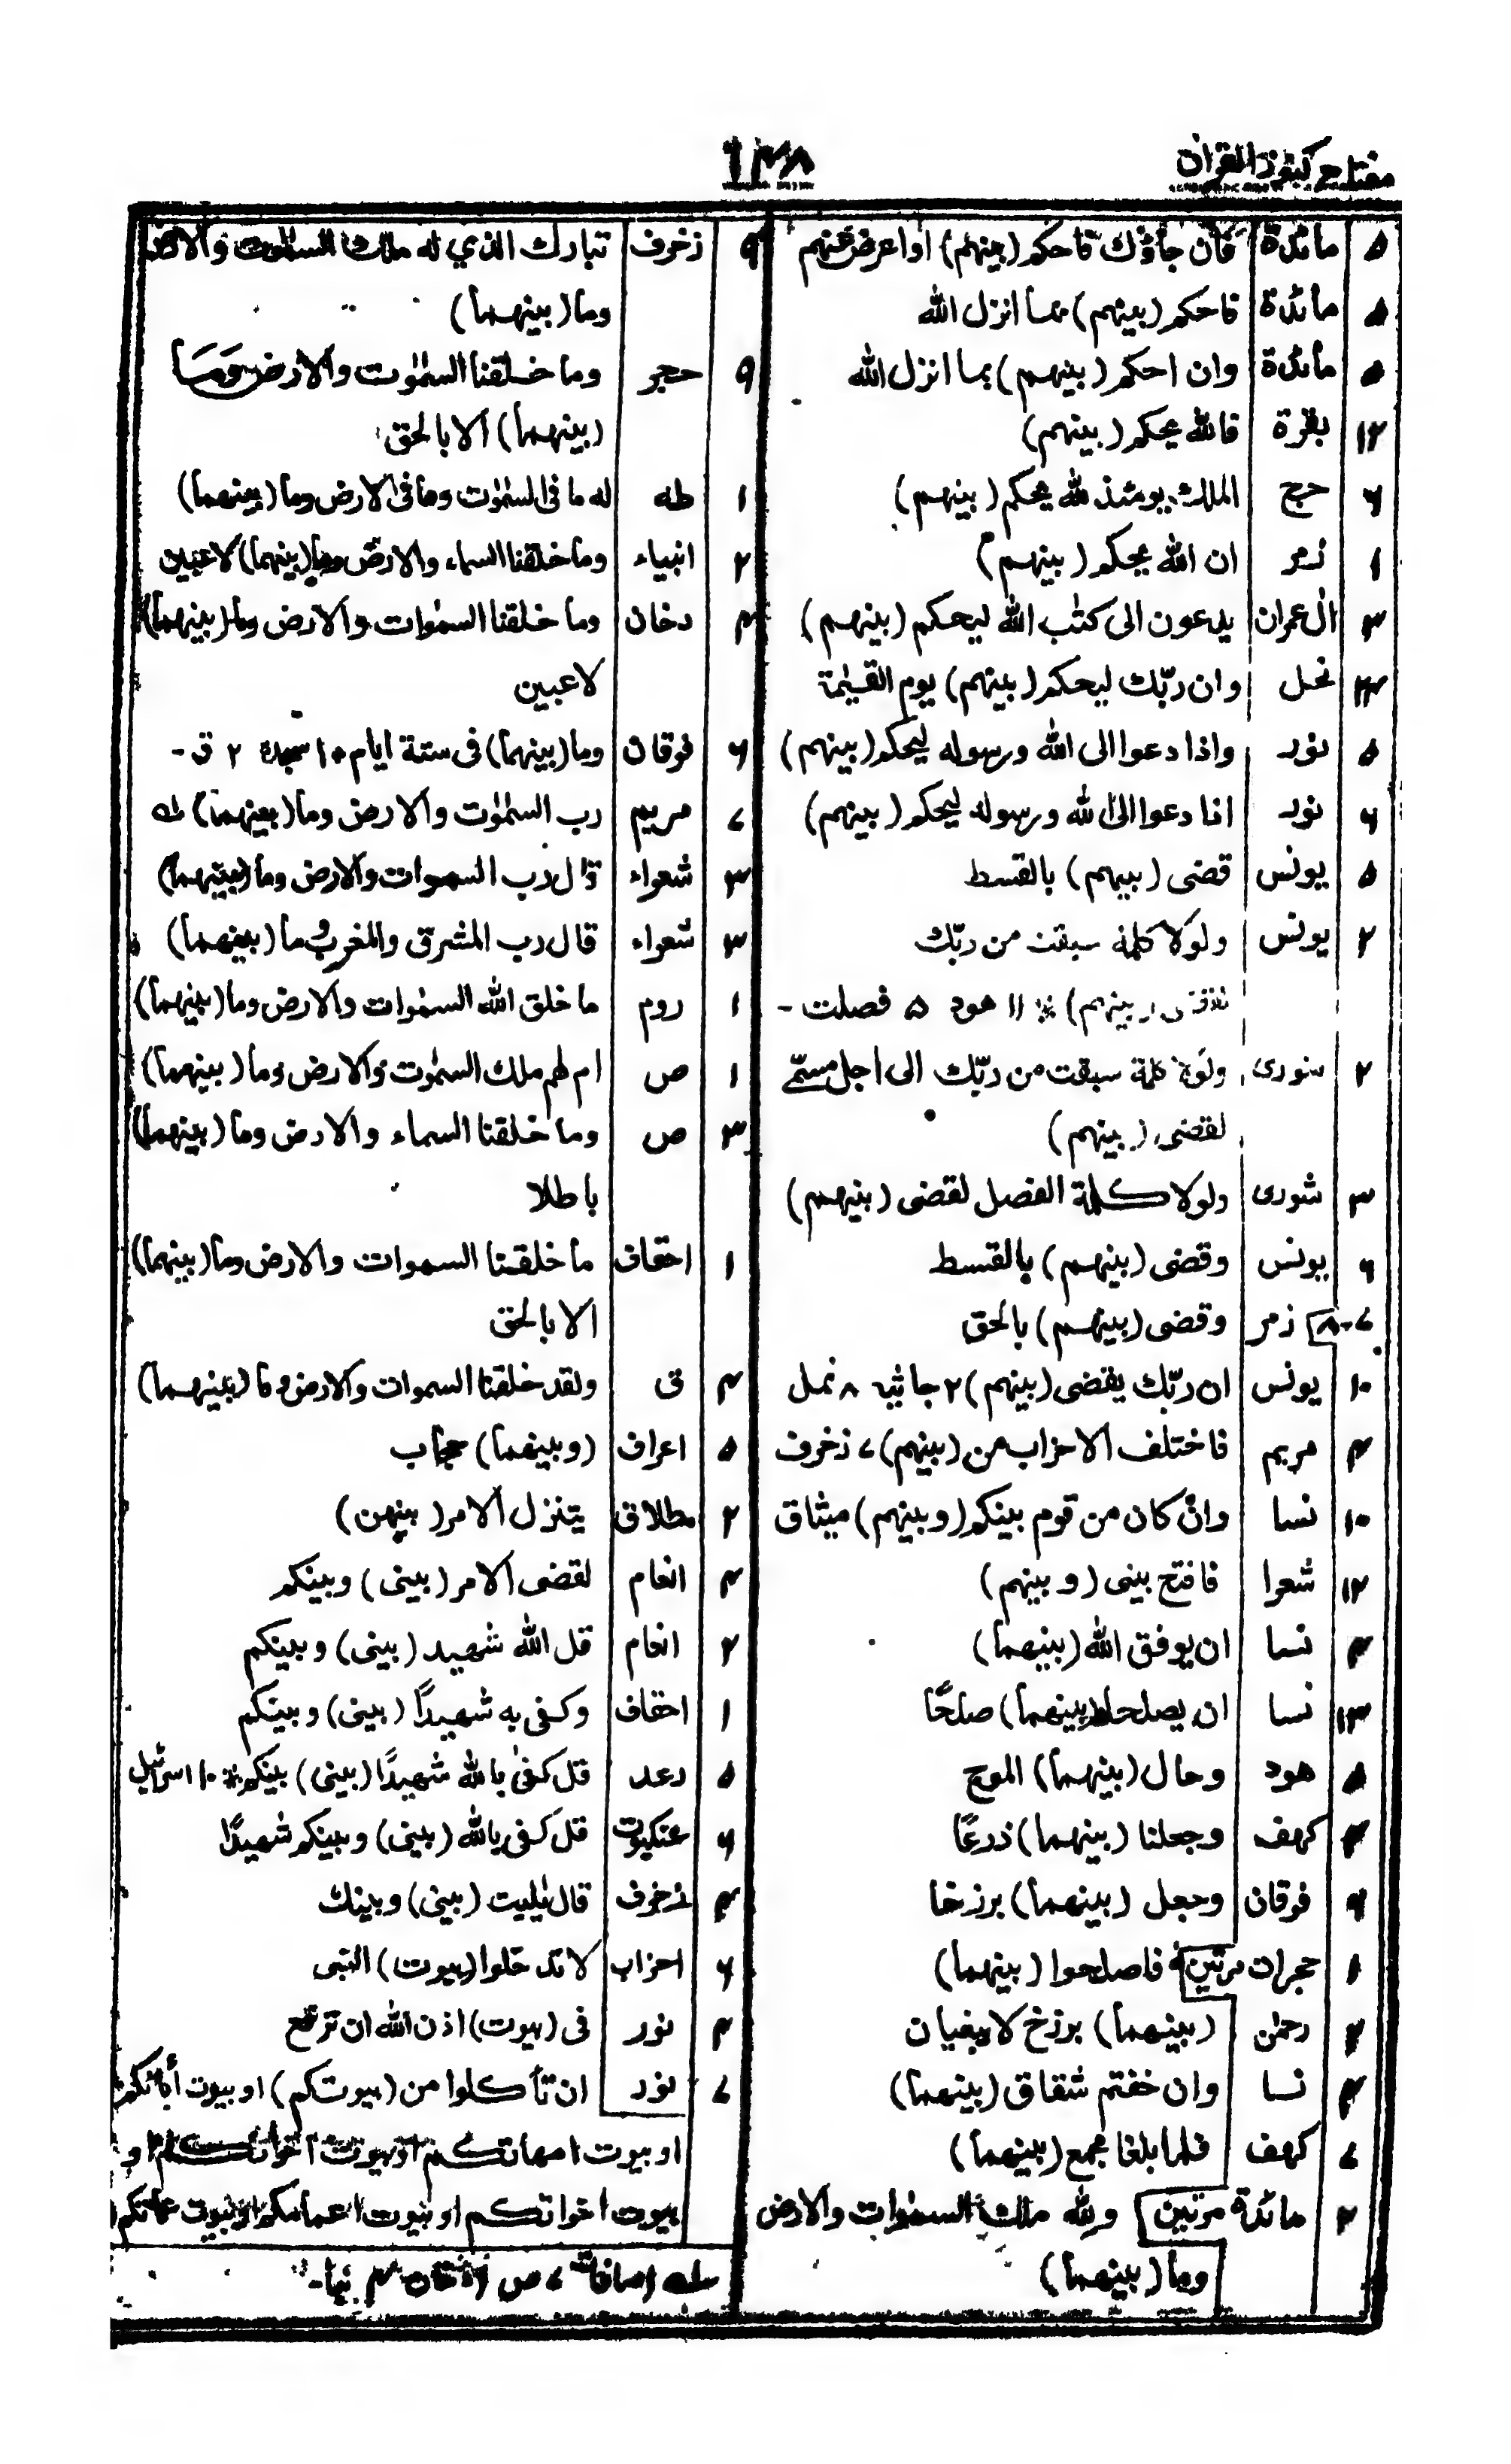 مفتاح كنوز القرآن
۱۳۸
۵ مائدة فان جاؤك فاحكم (بينهم) او اعرض عنهم
۵ مائدة فاحكم (بينهم) بما انزل الله
۵ مائدة وان احكم (بينهم) بما انزل الله
۱۲ بقرة فالله يحكم (بينهم)
۶ حج الملك يومئذ لله يحكم (بينهم)
۱ زمر ان الله يحكم (بينهم)
۳ اٰل عمران يدعون الى كتٰب الله ليحكم (بينهم)
نحل وان ربّك ليحكم (بينهم) يوم القيٰمة
۵ نور واذا دعوا الى الله ورسوله ليحكم (بينهم)
۶ نور اذا دعوا الى الله ورسوله ليحكم (بينهم)
۵ يونس قضى (بينهم) بالقسط
۲ يونس ولولا كلمة سبقت من ربّك
(بينهم) ۱۱ هود ۵ فصلت -
۲ شورى كلمة سبقت من ربّك الى اجل مسمّے
لقضى (بينهم)
۳ شورى ولولا كلمة الفصل لقضى (بينهم)
۶ يونس وقضى (بينهم) بالقسط
۷-۸ زمر وقضى (بينهم) بالحق
۱۰ يونس ان ربّك يقضى (بينهم) ۲ جاثيه ۸ نمل
۲ مريم فاختلف الاحزاب من (بينهم) ۷ زخرف
۱۰ نسا وان كان من قوم بينكم (وبينهم) ميثاق
۱۲ شعرا فافتح بينى (و بينهم)
۳ نسا ان يوفق الله (بينهما)
۱۳ نسا ان يصلحا (بينهما) صلحًا
۵ هود وحال (بينهما) الموج
كهف وجعلنا (بينهما) ذرعًا
فرقان وجعل (بينهما) برزخا
۱ حجرات مرتين فاصلحوا (بينهما)
رحمٰن (بينهما) برزخ لا يبغيان
نسا وان خفتم شقاق (بينهما)
۷ كهف فلما بلغا مجمع (بينهما)
۲ مائدة مرتين ولله ملك السمٰوات والارض
وما (بينهما)
۹ زخرف تبارك الذي له ملك السمٰوت والارض
وما (بينهما)
۹ حجر وما خلقنا السمٰوت والارض وَمَا
(بينهما) الا بالحق
۱ طه له ما فى السمٰوت وما فى الارض وما (بينهما)
۲ انبياء وما خلقنا السماء والارض وما (بينهما) لاعبين
۲ دخان وما خلقنا السمٰوات والارض وما (بينهما)
لاعبين
۶ فرقان وما (بينهما) فى ستة ايام ۱۰ سجدة ۲ ق -
۷ مريم رب السمٰوت والارض وما (بينهما) له
۳ شعراء قال رب السموات والارض وما (بينهما)
۳ شعراء قال رب المشرق والمغرب وما (بينهما)
۱ روم ما خلق الله السمٰوات والارض وما (بينهما)
۱ ص ام لهم ملك السمٰوت والارض وما (بينهما)
۳ ص وما خلقنا السماء والارض وما (بينهما)
باطلا
۱ احقاف ما خلقنا السموات والارض وما (بينهما)
الا بالحق
۳ ق ولقد خلقنا السموات والارض وما (بينهما)
۵ اعراف (وبينهما) حجاب
۲ طلاق يتنزل الامر (بينهن)
انعام لقضى الامر (بينى) وبينكم
۲ انعام قل الله شهيد (بينى) وبينكم
۱ احقاف وكفى به شهيدًا (بينى) وبينكم
۵ رعد قل كفىٰ بالله شهيدًا (بينى) بينكم ۱۰ اسرائيل
۶ عنكبوت قل كفى بالله (بينى) وبينكم شهيدًا
زخرف قال يٰليت (بينى) وبينك
۶ احزاب لا تدخلوا (بيوت) النبى
نور فى (بيوت) اذن الله ان ترفع
۷ نور ان تأكلوا من (بيوتكم) او بيوت أبائكم
او بيوت امهاتكم او بيوت اخوانكم او
بيوت اخواتكم او بيوت اعمامكم او بيوت عماتكم